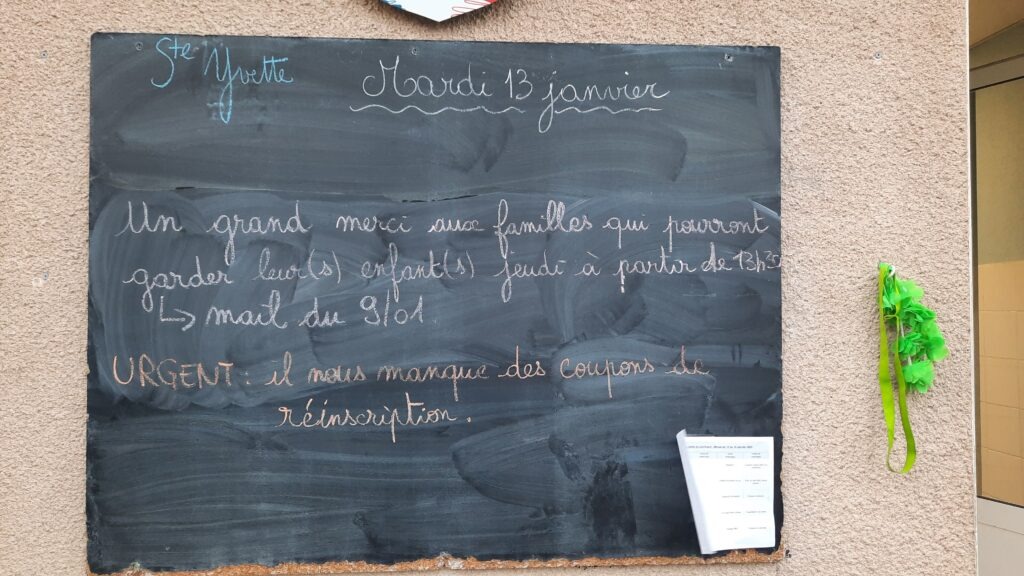 Ste Yvette
Mardi 13 janvier
Un grand merci aux familles qui pourront
garder leur(s) enfant(s) jeudi à partir de 13h30
↳ mail du 9/01
URGENT : il nous manque des coupons de
réinscription.